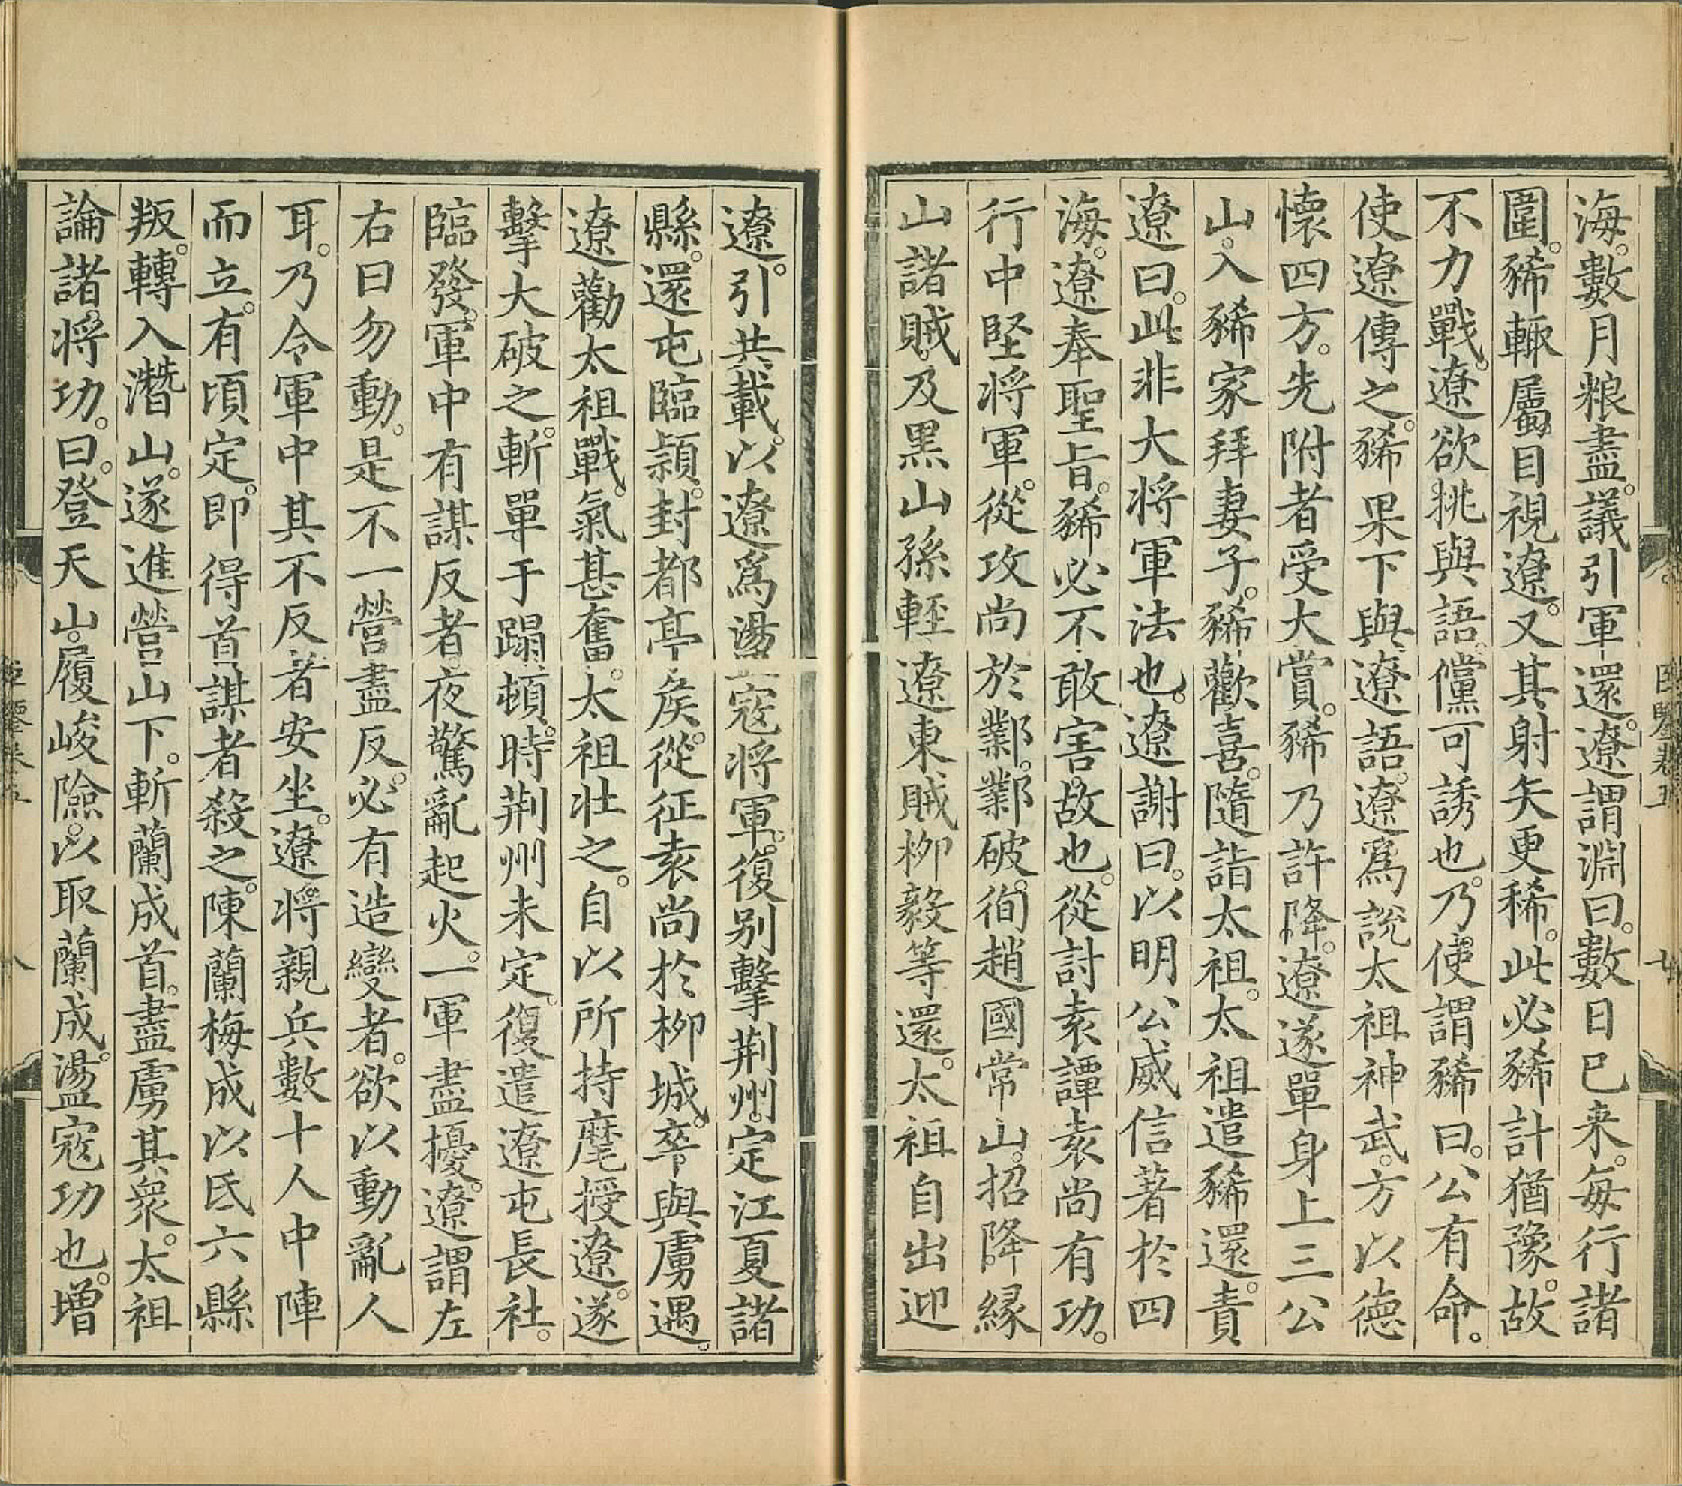 海。數月粮盡。議引軍還。遼謂淵曰。數日已来。每行諸
圍。豨輙屬目視遼。又其射矢更稀。此必豨計猶豫。故
不力戰。遼欲挑與語。儻可誘也。乃使謂豨曰。公有命。
使遼傳之。豨果下與遼語。遼爲說太祖神武。方以德
懷四方。先附者受大賞。豨乃許降。遼遂單身上三公
山。入豨家拜妻子。豨歡喜。隨詣太祖。太祖遣豨還。責
遼曰。此非大将軍法也。遼謝曰。以明公威信著於四
海。遼奉聖旨。豨必不敢害。故也。從討袁譚袁尚有功。
行中堅将軍。從攻尚於鄴。鄴破。徇趙國常山。招降縁
山諸賊。及黒山孫輕。遼東賊柳毅等還。太祖自出迎
遼。引共載。以遼爲盪寇将軍。復别擊荆州。定江夏諸
縣。還屯臨潁。封都亭矦。從征袁尚於柳城。卒與虜遇。
遼勸太祖戰。氣甚奮。太祖壮之。自以所持麾授遼。遂
擊大破之。斬單于蹋頓。時荆州未定。復遣遼屯長社。
臨發。軍中有謀反者。夜驚亂起火。一軍盡擾。遼謂左
右曰勿動。是不一營盡反。必有造變者。欲以動亂人
耳。乃令軍中其不反者安坐。遼将親兵數十人中陣
而立。有頃定。即得首謀者殺之。陳蘭梅成以氐六縣
叛。轉入潛山。遂進營山下。斬蘭成首。盡虜其衆。太祖
論諸将功。曰。登天山。履峻險。以取蘭成。盪寇功也。增